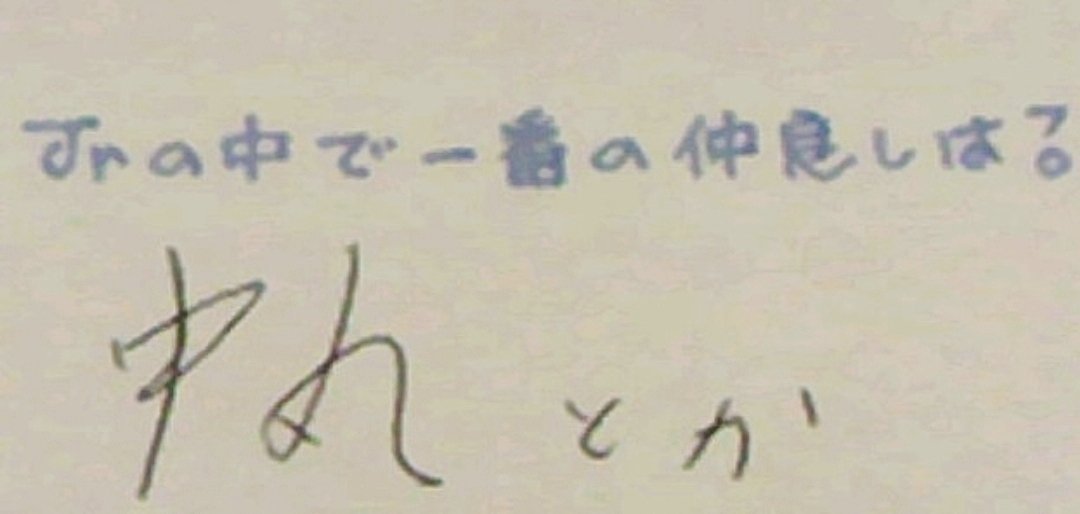 Jrの中で一番の仲良しは?
中丸とか